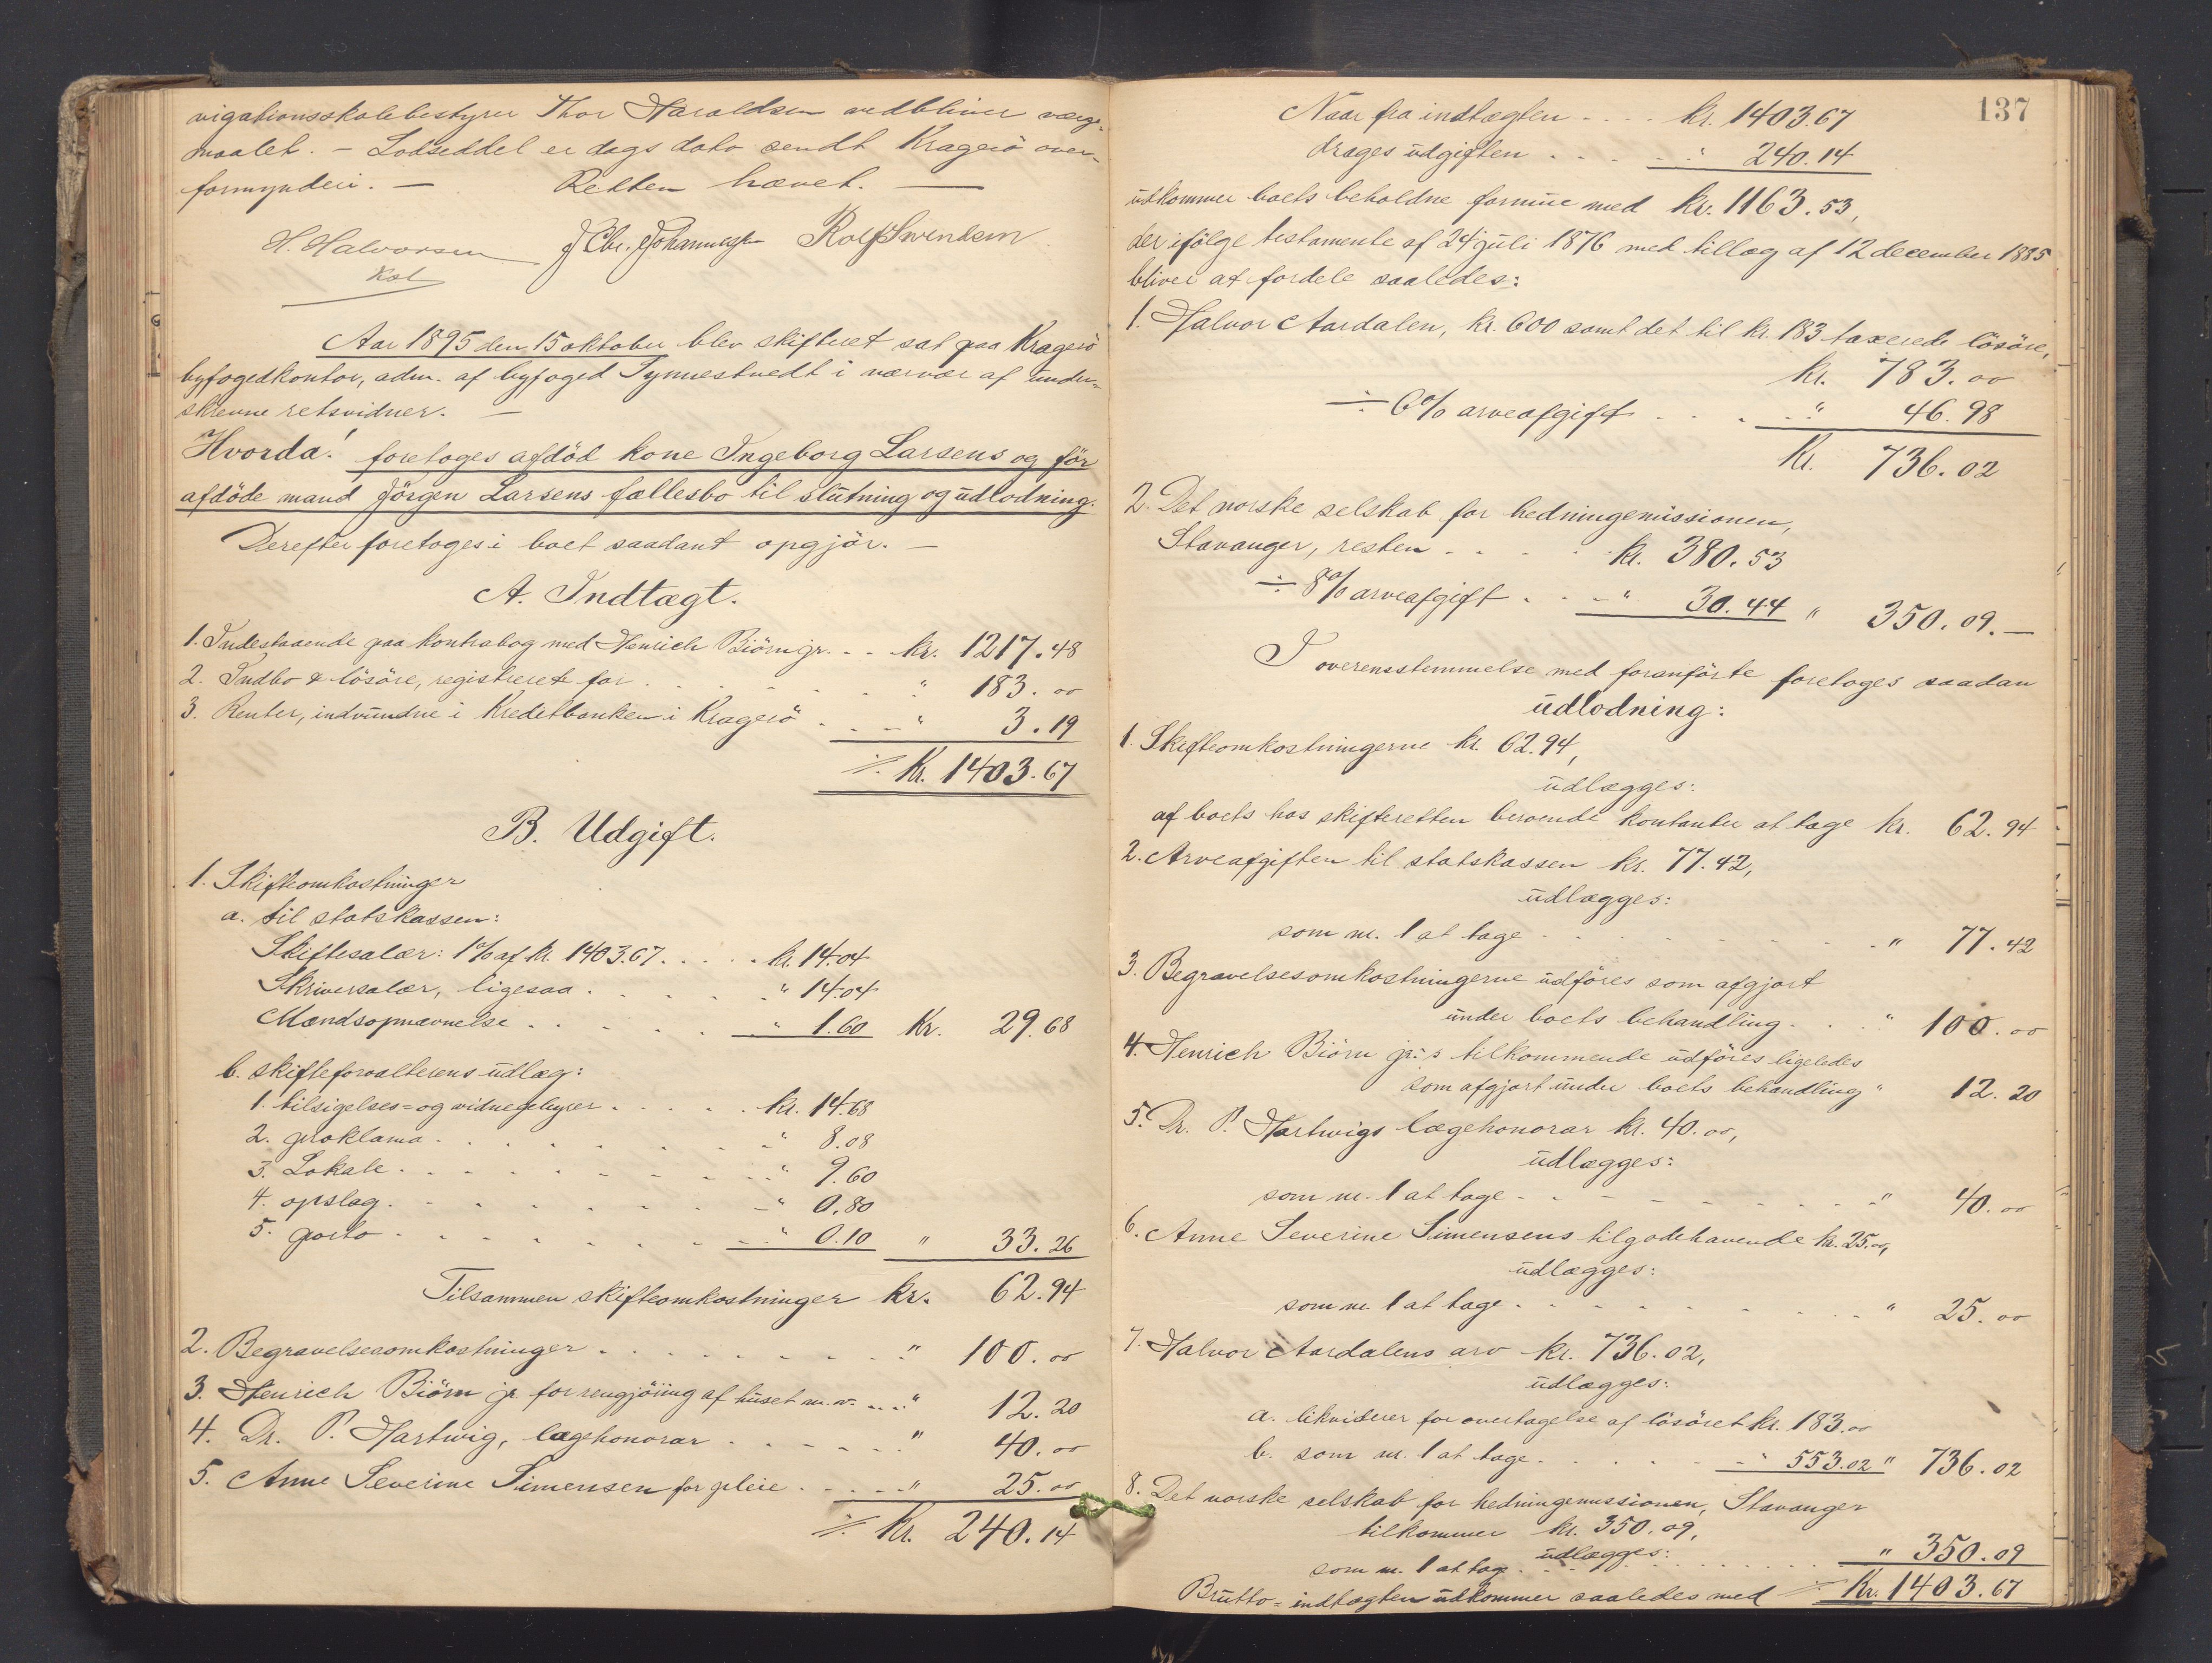 vigationsskolebestyrer Thor Haraldsen vedbliver værge-
maalet. – Lodseddel er dags dato sendt Kragerö over-
formynderi. – Retten hævet. –
H. Halvorsen J Chr. Johannessen Rolf Svendsen
Kst
Aar 1895 den 15 oktober blev skifteret sat paa Kragerö
byfogedkontor, adm. af byfoged Tynnestvedt i nærvær af under-
skrevne retsvidner. –
Hvorda! foretoges afdöd kone Ingeborg Larsens og för
afdöde mand Jörgen Larsens fællesbo til slutning og udlodning.
Derefter foretoges i boet saadant opgjör. –
A. Indtægt.
1. Indestaaende paa kontrabog med Henrich Biörn jr. . . kr. 1217.48
2. Indbo & lösöre, registreret for . . . " 183.00
3. Renter, indvundne i Kreditbanken i Kragerö . . " 3.19
∕. Kr. 1403.67
B. Udgift.
1. Skifteomkostninger
a. til statskassen:
Skiftesalær: 1% af kr. 1403.67 . . . kr. 14.04
Skriversalær, ligesaa . . . " 14.04
Mændsopnævnelse . . . " 1.60 Kr. 29.68
b. skifteforvalterens udlæg:
1. tilsigelses- og vidnegebyrer . . . kr. 14.68
2. proklama . . . " 8.08
3. Lokale . . . " 9.60
4. opslag . . . " 0.80
5. porto . . . " 0.10 " 33.26
Tilsammen skifteomkostninger kr. 62.94
2. Begravelsesomkostninger . . . " 100.00
3. Henrich Biörn jr. for rengjöring af huset m.v. . . " 12.20
4. Dr. P. Hartwig, lægehonorar . . . " 40.00
5. Anne Severine Simensen for pleie . . . " 25.00
∕. Kr. 240.14
137
Naar fra indtægten . . . kr. 1403.67
drages udgiften . . . " 240.14
udkommer boets beholdne formue med kr. 1163.53,
der ifölge testamente af 24 juli 1876 med tillæg af 12 december 1885
bliver at fordele saaledes:
1. Halvor Aardalen, kr. 600 samt det til kr. 183 taxerede lösöre,
kr. 783.00
÷ 6% arveafgift . . . " 46.98
Kr. 736.02
2. Det norske selskab for hedningemissionen,
Stavanger, resten . . . kr. 380.53
÷ 8% arveafgift . . . " 30.44 " 350.09. –
I overensstemmelse med foranförte foretoges saadan
udlodning:
1. Skifteomkostningerne kr. 62.94,
udlægges:
af boets hos skifteretten beroende kontanter at tage kr. 62.94
2. Arveafgiften til statskassen kr. 77.42,
udlægges:
som nr. 1 at tage . . . " 77.42
3. Begravelsesomkostningerne udföres som afgjort
under boets behandling . . . " 100.00
4. Henrich Biörn jr.s tilkommende udföres ligeledes
som afgjort under boets behandling " 12.20
5. Dr. P. Hartwigs lægehonorar kr. 40.00,
udlægges:
som nr. 1 at tage . . . " 40.00
6. Anne Severine Simensens tilgodehavende kr. 25.00,
udlægges:
som nr. 1 at tage . . . " 25.00
7. Halvor Aardalens arv kr. 736.02,
udlægges:
a. likviderer for overtagelse af lösöret kr. 183.00
b. som nr. 1 at tage . . . " 553.02 " 736.02
8. Det norske selskab for hedningemissionen, Stavanger
tilkommer kr. 350.09,
udlægges:
som nr. 1 at tage . . . " 350.09
Brutto-indtægten udkommer saaledes med ∕. Kr. 1403.67